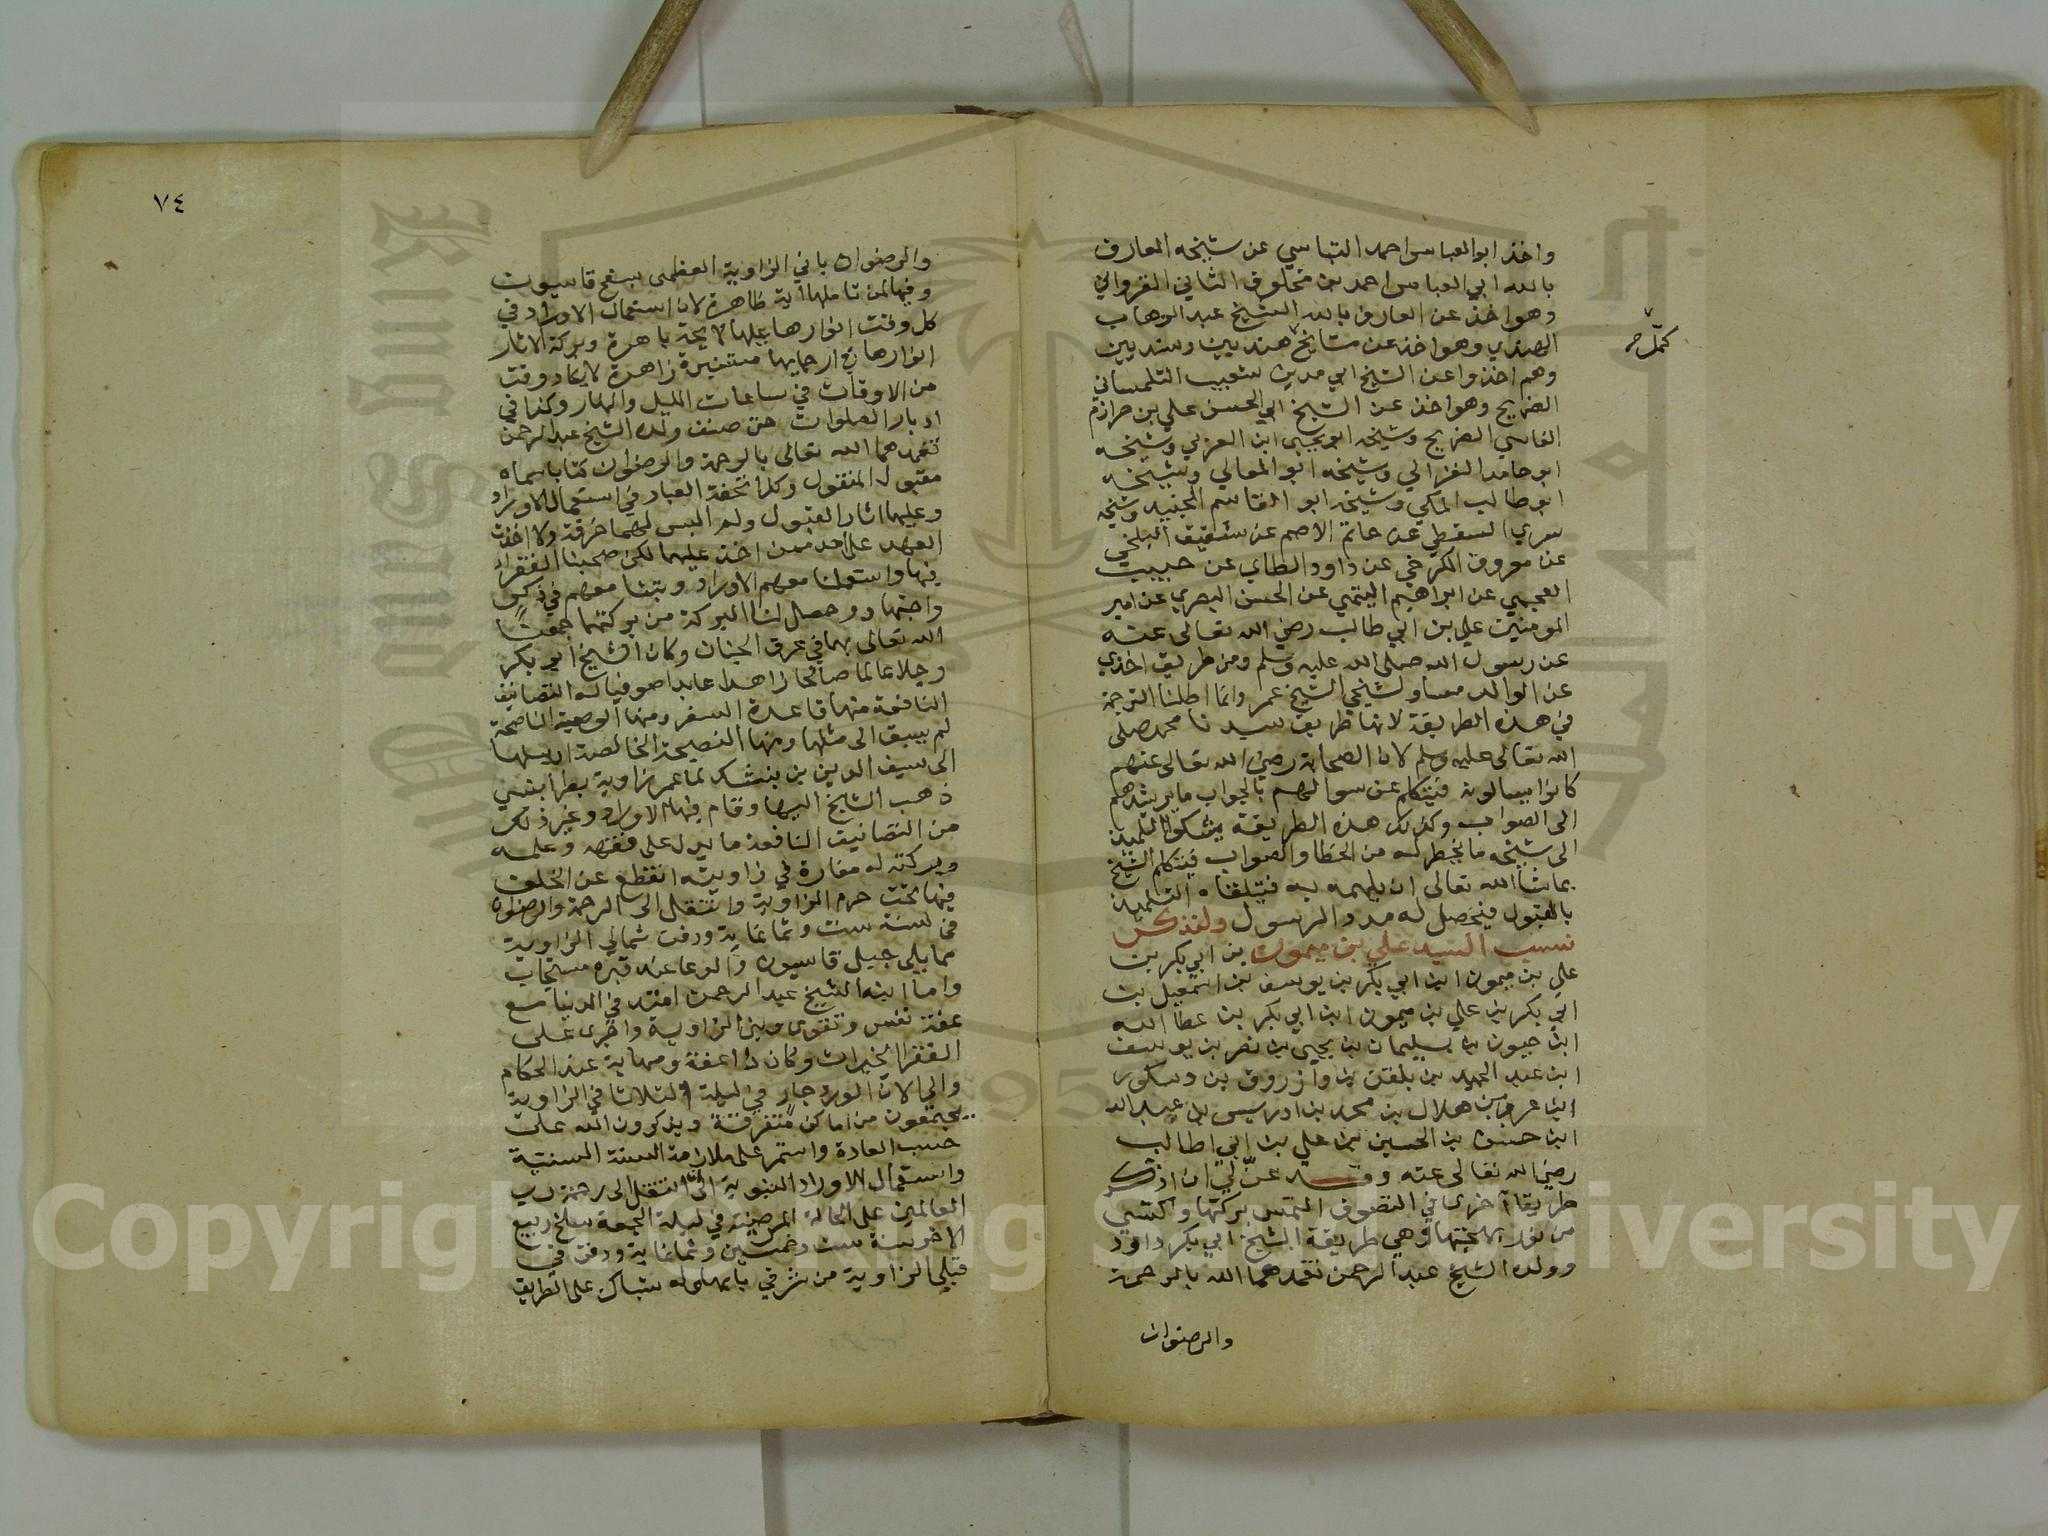 واخذ ابو العباس احمد التباسي عن شيخه العارف
بالله ابي العباس احمد بن مخلوف الثاني القرواني
وهو اخذ عن العارف بالله الشيخ عبد الوهاب
الهندي وهو اخذ عن مشايخ هنديين وسنديين
كمل
وهم اخذوا عن الشيخ ابي مدين شعيب التلمساني
الضريح وهو اخذ عن الشيخ ابي الحسن علي بن حرازم
الفاسي الضريح وشيخه ابو يحيى ابن العربي وشيخه
ابو حامد الغزالي وشيخه ابو المعالي وشيخه
ابو طالب المكي وشيخه ابو القاسم الجنيد وشيخه
سري السقطي عن حاتم الاصم عن شقيق البلخي
عن معروف الكرخي عن داود الطاي عن حبيب
العجمي عن ابراهيم التيمي عن الحسن البصري عن امير
المومنين علي بن ابي طالب رضي الله تعالى عنه
عن رسول الله صلى الله عليه وسلم ومن طريق اخذي
عن الوالد مساو لشيخي الشيخ عمر وانما اطلنا الترجمة
في هذه الطريقة لانها طريق سيدنا محمد صلى
الله تعالى عليه وسلم لان الصحابة رضي الله تعالى عنهم
كانوا يسالونه فيتكلم عن سوالهم بالجواب ما يرشدهم
الى الصواب وكذلك هذه الطريقة يشكوا التلميذ
الى شيخه ما يخطر له من الخطا والصواب فيتكلم الشيخ
بما شا الله تعالى ان يلهمه به فيتلقاه التلميذ
بالقبول فيحصل له مدد الرسول ولنذكر
نسب السيد علي بن ميمون بن ابي بكر بن
علي بن ميمون ابن ابي بكر بن يوسف بن اسمعيل بن
ابي بكر بن علي بن ميمون ابن ابي بكر بن عطا الله
ابن حيون بن سليمان بن يحيى بن نصر بن يوسف
ابن عبد الحميد بن يلفتن بن وازروق بن وسكور
ابن عرجر بن هلال بن محمد بن ادريس بن عبد الله
ابن حسن بن الحسين بن علي بن ابي طالب
رضي الله تعالى عنه وقد عن لي ان اذكر
طريقا اخرى في التصوف التمس بركتها واكتسي
من نور بهجتها وهي طريقة الشيخ ابي بكر داود
وولده الشيخ عبد الرحمن تغمدهما الله بالرحمة
والرضوان
٧٤
والرضوان باني الزاوية العظمى بسفح قاسيون
وفيها لمن تاملها اية ظاهرة لان استعمال الاوراد في
كل وقت انوارها عليها لايحة باهرة وبركة الاثار
انوارها في ارجايها مستنيرة زاهرة لا يكاد وقت
من الاوقات في ساعات الليل والنهار وكذا في
ادبار الصلوات حتى صنف ولده الشيخ عبد الرحمن
تغمدهما الله تعالى بالرحمة والرضوان كتابا سماه
مقبول المنقول وكذا تحفة العباد في استعمال الاوراد
وعليها اثار القبول ولم البس لهما خرقة ولا اخذت
العهد على احد ممن اخذ عليهما لكن صحبنا الفقراء
فيها واستعملنا معهم الاوراد وبتنا معهم في ذكر
واجتهاد وحصل لنا البركة من بركتهما جمعنا
الله تعالى بهما في غرف الجنان وكان الشيخ ابو بكر
رجلا عالما صالحا زاهدا عابدا صوفيا له التصانيف
النافعة منها قاعدة السفر ومنها الوصية الناصحة
لم يسبق الى مثلها ومنها النصيحة الخالصة ارسلها
الى سيف الدين بن بنشك لما عمر زاوية بطرابلس
ذهب الشيخ اليها وقام فيها الاوراد وغير ذلك
من التصانيف النافعة ما يدل على فقهه وعلمه
وبركته له مغارة في زاويته انقطع عن الخلق
فيها تحت حرم الزاوية وانتقل الى الرحمة والرضوان
في سنة ست وثمانماية ودفن شمالي الزاوية
مما يلي جبل قاسيون والدعا عند قبره مستجاب
واما ابنه الشيخ عبد الرحمن امتد في الدنيا مع
عفة نفس وتقوى وبنى الزاوية واجرى على
الفقرا الخيرات وكان ذا عفة ومهابة عند الحكام
والى الان الورد جار في ليلة الثلاثا في الزاوية
يجتمعون من اماكن متفرقة ويذكرون الله على
حسب العادة واستمر على ملازمة السنة السنية
واستعمال الاوراد النبوية الى ان انتقل الى رحمة رب
العالمين على الحالة المرضية في ليلة الجمعة سلخ ربيع
الاخر سنة ست وخمسين وثمانماية ودفن في
قبلي الزاوية من شرقي بابها وله شباك على الطريق
Copyright © King Saud University